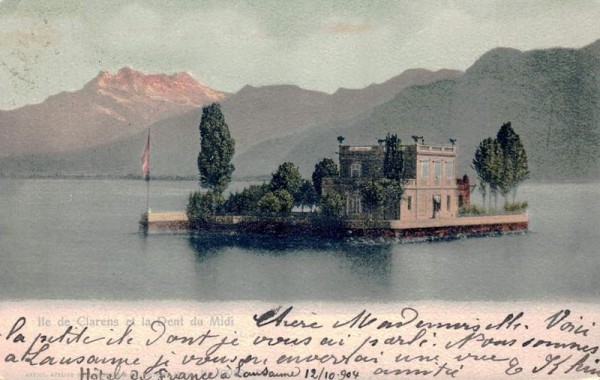 Ile de Clarens et la Dent du Midi
Chère Mademoiselle. Voici
la petite ile dont je vous ai parlé. Nous sommes
à Lausanne je vous en enverrai une vue
amitié
Hôtel de France à Lausanne 12/10.904